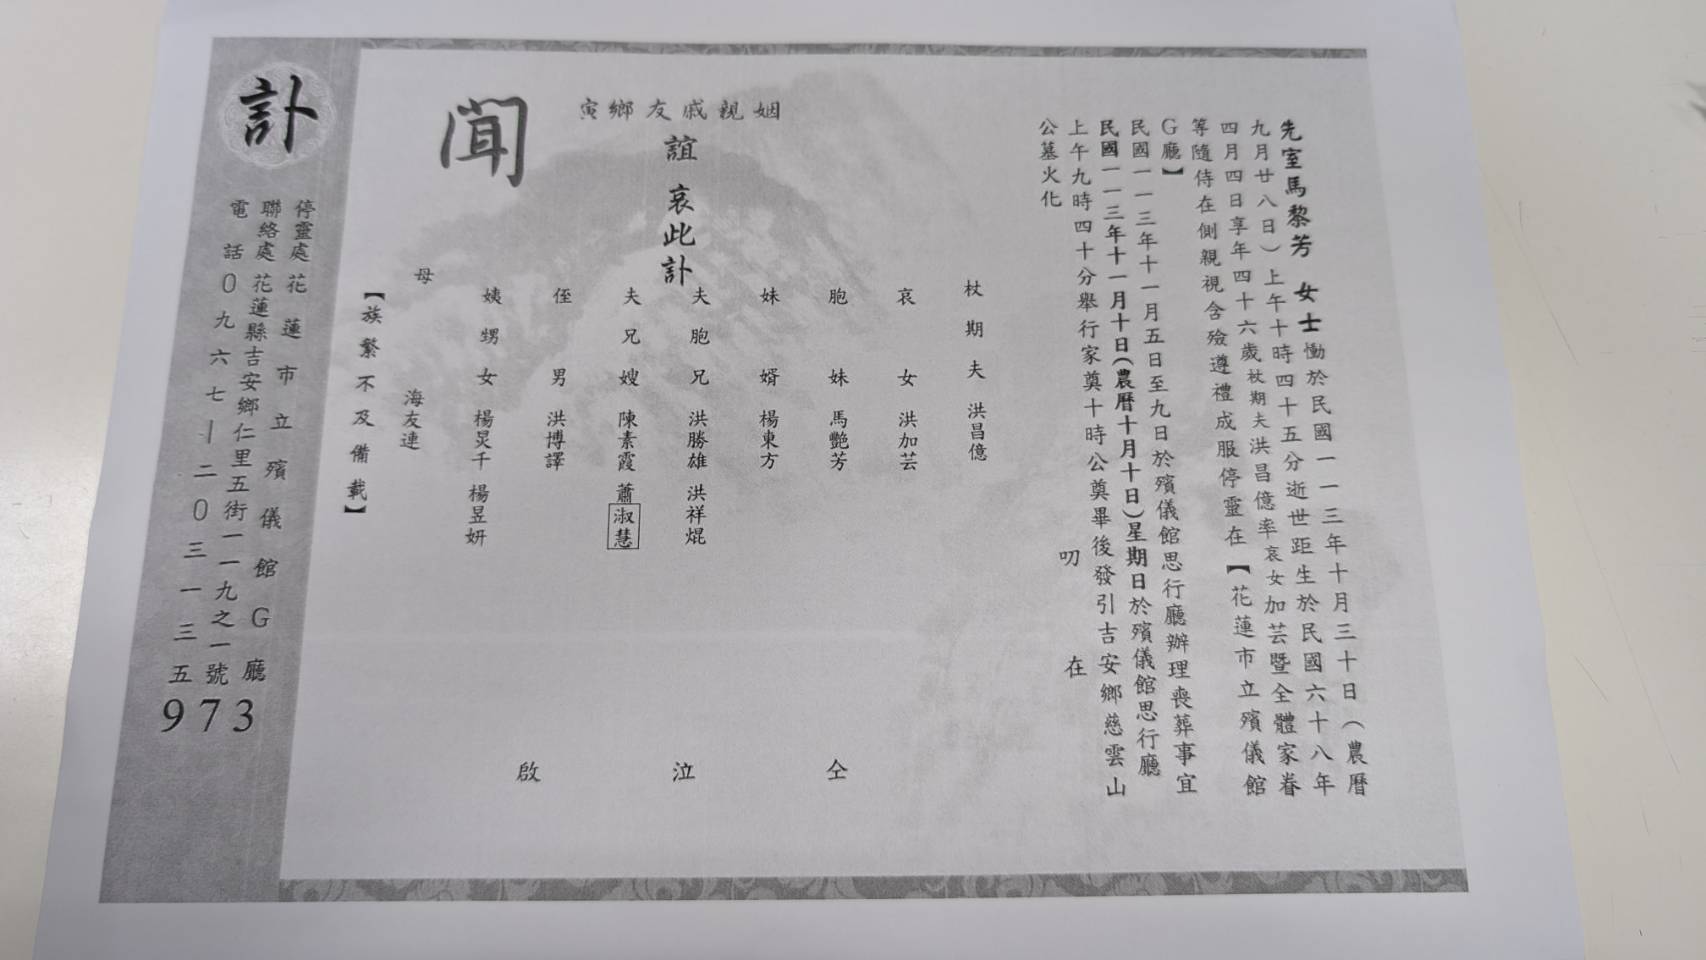 先室馬黎芳 女士慟於民國一一三年十月三十日（農曆
九月廿八日）上午十時四十五分逝世距生於民國六十八年
四月四日享年四十六歲杖期夫洪昌億率哀女加芸暨全體家眷
等隨侍在側親視含殮遵禮成服停靈在【花蓮市立殯儀館
G廳】
民國一一三年十一月五日至九日於殯儀館思行廳辦理喪葬事宜
民國一一三年十一月十日(農曆十月十日)星期日於殯儀館思行廳
上午九時四十分舉行家奠十時公奠畢後發引吉安鄉慈雲山
公墓火化
叨在
姻親戚友鄉寅
誼 哀此訃
聞
杖期夫 洪昌億
哀女 洪加芸
胞妹 馬艷芳
妹婿 楊東方
夫胞兄 洪勝雄 洪祥焜
夫兄嫂 陳素霞 蕭淑慧
侄男 洪博譯
姨甥女 楊炅千 楊昱妍
母 海友連
【族繁不及備載】
仝泣啟
訃
停靈處 花蓮市立殯儀館G廳
聯絡處 花蓮縣吉安鄉仁里五街一一九之一號
電話 0九六七－二0三一三五
973